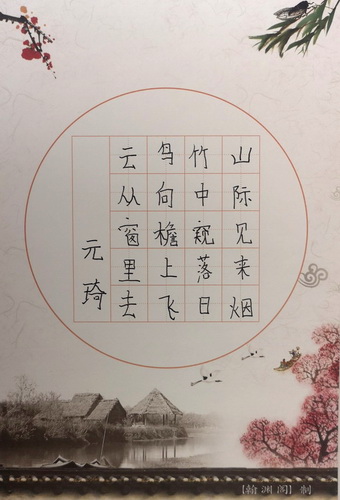 山际见来烟
竹中窥落日
鸟向檐上飞
云从窗里去
元琦
[翰渊阁]制